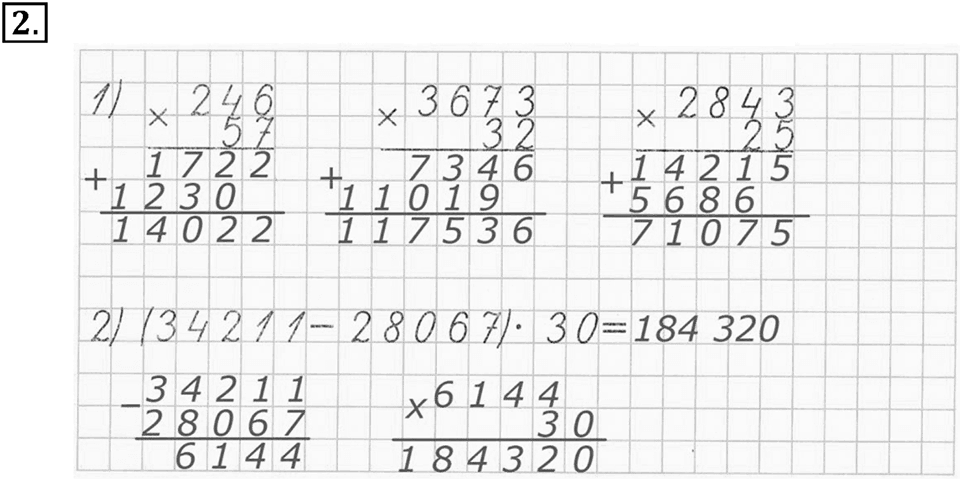 2.
1) × 246 × 3673 × 2843
57 32 25
+ 1722 + 7346 + 14215
1230 11019 5686
14022 117536 71075
2) (34211 − 28067) · 30 = 184 320
− 34211 × 6144
28067 30
6144 184320